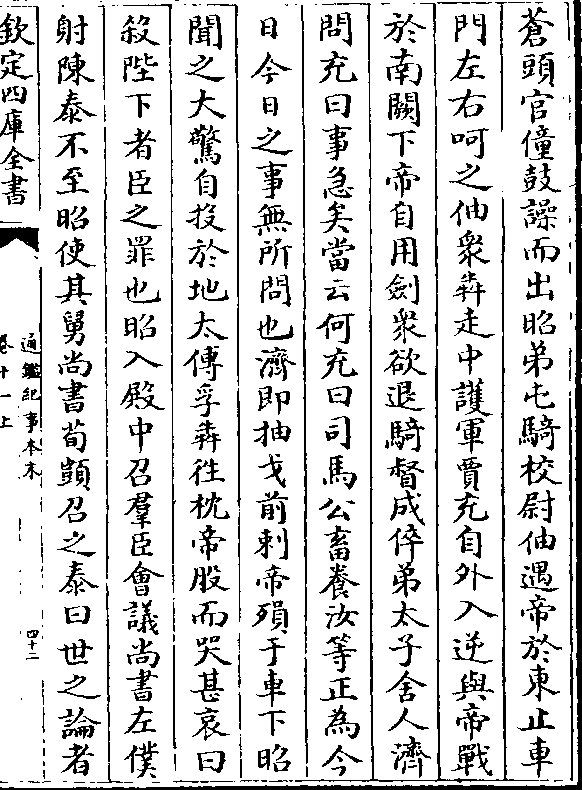 蒼頭官僮鼓譟而出昭弟屯騎校尉伷遇帝於東止車
門左右呵之伷衆犇走中護軍賈充自外入逆與帝戰
於南闕下帝自用劍衆欲退騎督成倅弟太子舍人濟
問充曰事急矣當云何充曰司馬公畜養汝等正為今
日今日之事無所問也濟即抽戈前刺帝殞于車下昭
聞之大驚自投於地太傅孚犇往枕帝股而哭甚哀曰
殺陛下者臣之罪也昭入殿中召羣臣會議尚書左僕
射陳泰不至昭使其舅尚書荀顗召之泰曰世之論者
欽定四庫全書
通鑑紀事本末
卷十一上
四十二